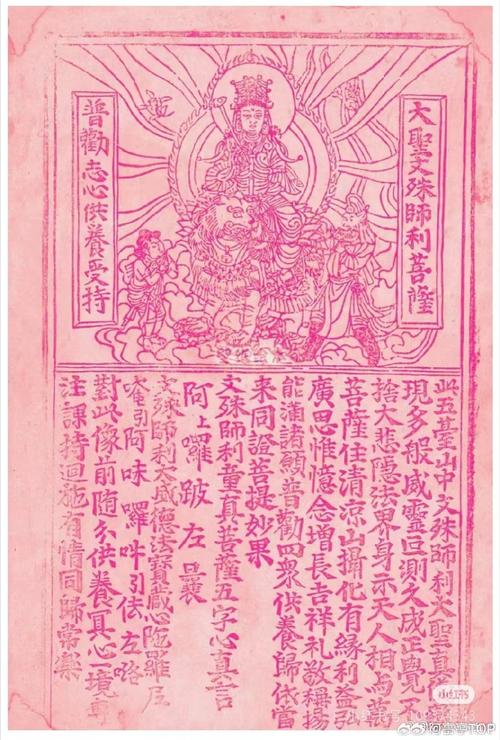 大聖文殊師利菩薩
普勸志心供養受持
此五臺山中文殊師利大聖真
現多般威靈叵測久成正覺不
捨大悲隱法界身示天人相與萬
菩薩住清涼山攝化有緣利益弘
廣思惟憶念增長吉祥礼敬稱揚
能滿諸願普勸四衆供養歸依當
來同證菩提妙果
文殊師利童真菩薩五字心真言
阿上囉跛左曩
文殊師利大威德法寶藏心陁羅尼
唵引阿味囉吽引佉左咯
對此像前随分供養冥心一境專
注課持迴施有情同歸常樂
小红书
TOP